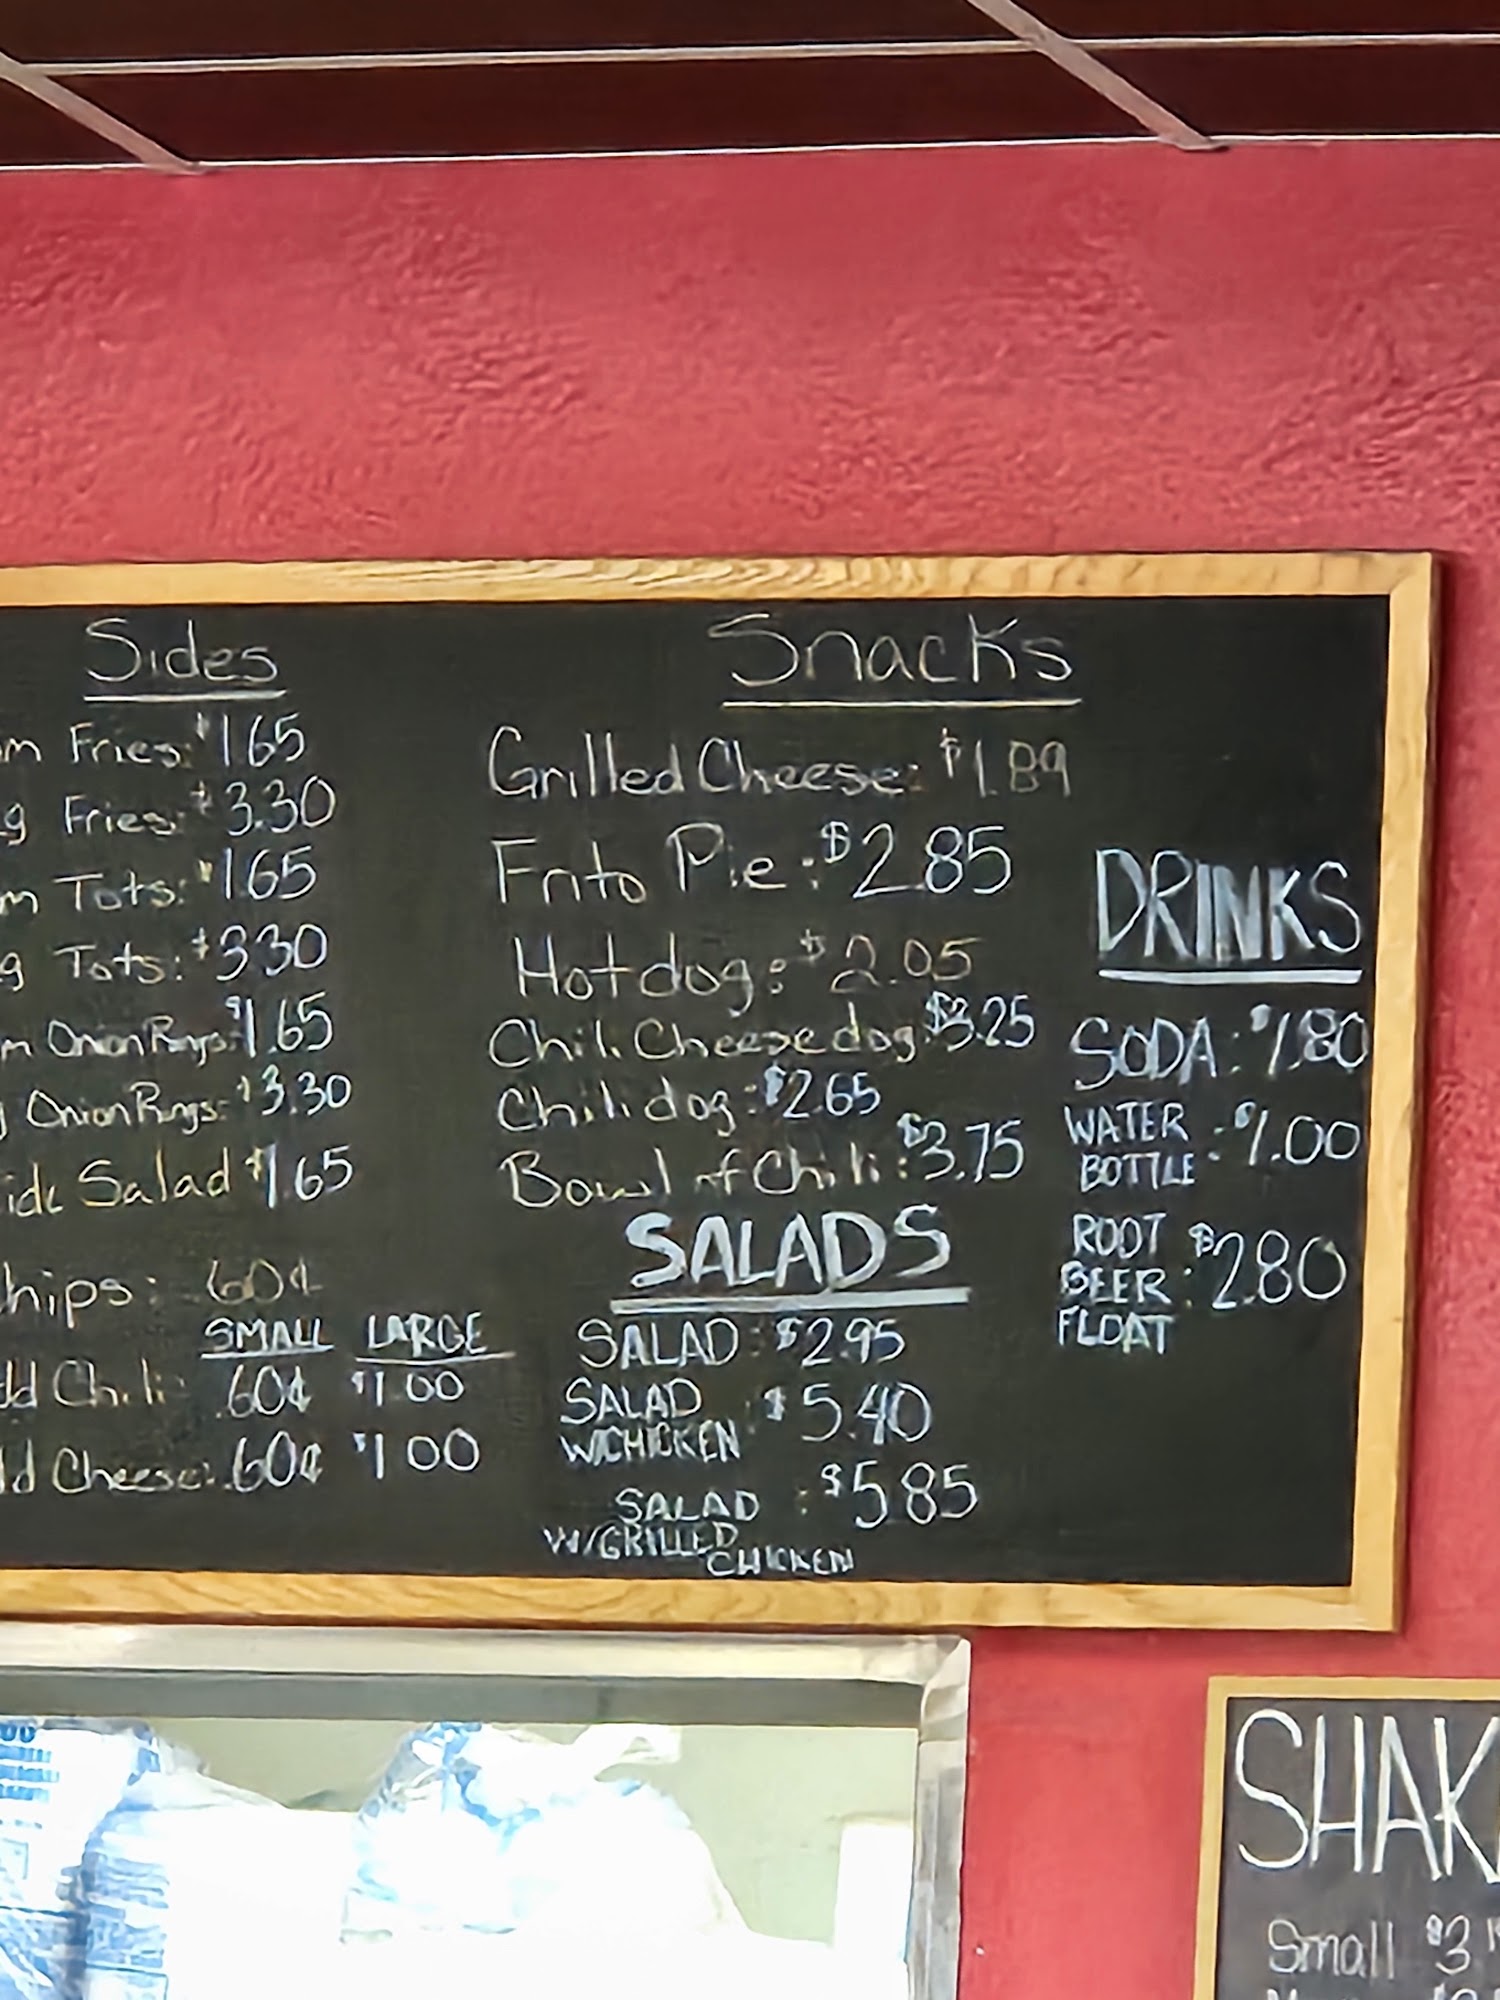 Sides
m Fries: $1.65
g Fries: $3.30
m Tots: $1.65
g Tots: $3.30
m Onion Rings: $1.65
g Onion Rings: $3.30
ide Salad $1.65
hips: 60¢
SMALL LARGE
dd Chili: .60¢ $1.00
dd Cheese: .60¢ $1.00
Snacks
Grilled Cheese: $1.89
Frito Pie: $2.85
Hotdog: $2.05
Chili Cheesedog: $3.25
Chilidog: $2.65
Bowl of Chili: $3.75
SALADS
SALAD: $2.95
SALAD
W/CHICKEN : $5.40
SALAD : $5.85
W/GRILLED
CHICKEN
DRINKS
SODA: $1.80
WATER
BOTTLE : $1.00
ROOT
BEER : $2.80
FLOAT
SHAK
Small $3